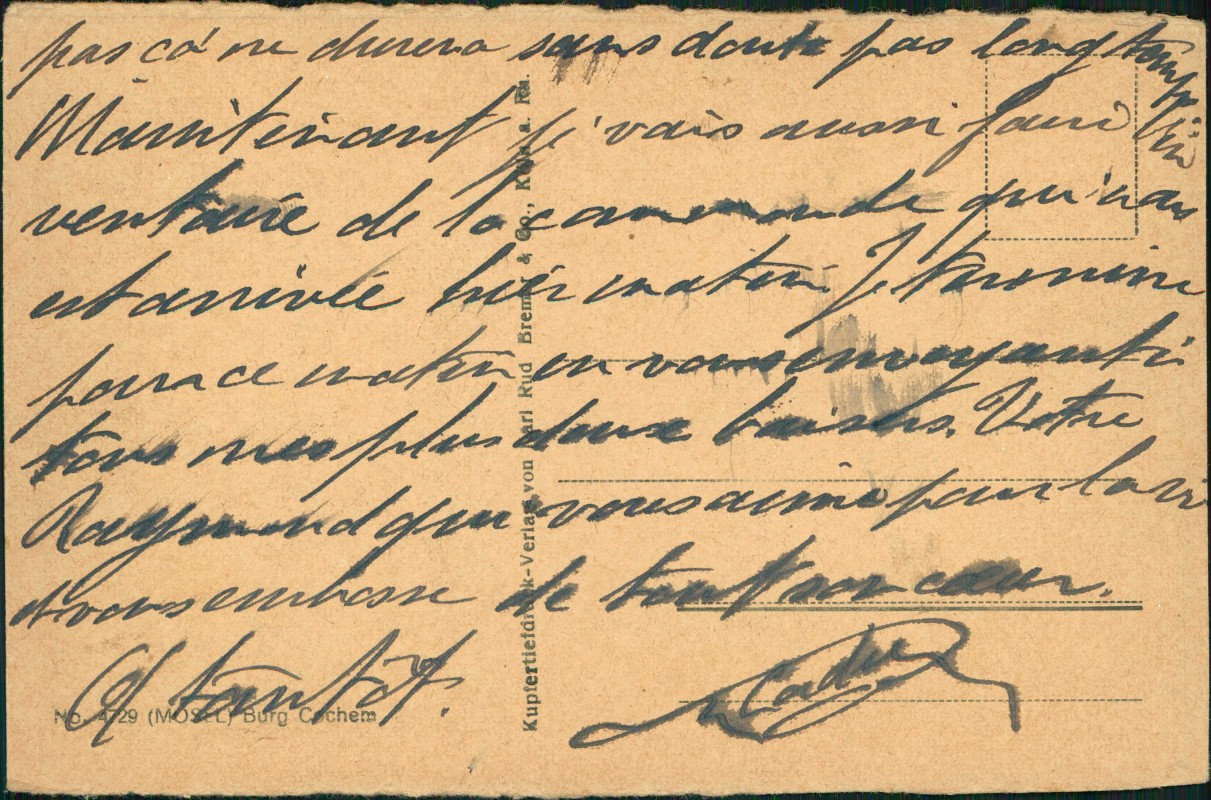 pas ça ne durera sans doute pas longtemps
Maintenant je vais aussi faire l'in
ventaire de la commande qui nous
est arrivée hier matin Je termine
pour ce matin en vous envoyant ti
tous mes plus doux baisers. Votre
Raymond qui vous aime pour la vie
et vous embrasse de tout son cœur.
A tantôt.
No. 4729 (MOSEL) Burg Cochem
Kupfertiefdruck-Verlag von Carl Rud Bremer & Co., Köln a. Rh.